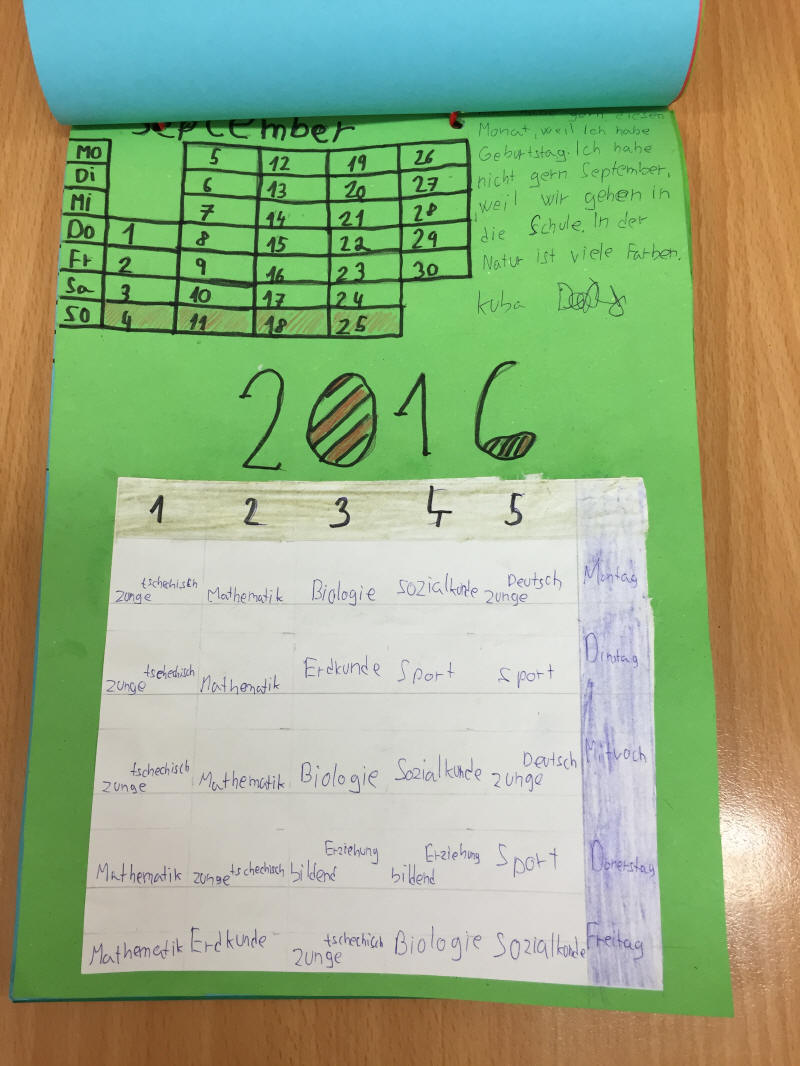 September
gern diesen
Monat, weil Ich habe
Geburtstag. Ich habe
nicht gern September,
weil wir gehen in
die Schule. In der
Natur ist viele Farben.
kuba
Mo 5 12 19 26
Di 6 13 20 27
Mi 7 14 21 28
Do 1 8 15 22 29
Fr 2 9 16 23 30
Sa 3 10 17 24
So 4 11 18 25
2016
1 2 3 4 5
tschechisch zunge Mathematik Biologie Sozialkunde Deutsch zunge Montag
tschechisch zunge Mathematik Erdkunde Sport Sport Dinstag
tschechisch zunge Mathematik Biologie Sozialkunde Deutsch zunge Mitvoch
Mathematik zunge tschechisch Erziehung bildend Erziehung bildend Sport Donerstag
Mathematik Erdkunde tschechisch zunge Biologie Sozialkunde Freitag